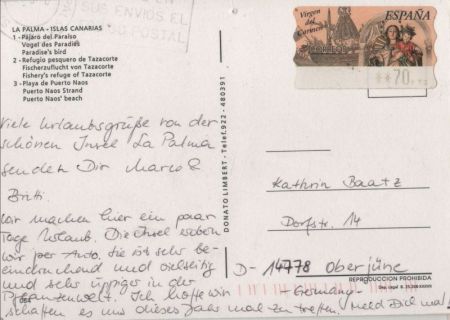 SUS ENVIOS EL
POSTAL
LA PALMA - ISLAS CANARIAS
1 - Pájaro del Paraíso
Vogel des Paradies
Paradise's bird
2 - Refugio pesquero de Tazacorte
Fischerzauflucht von Tazacorte
Fishery's refuge of Tazacorte
3 - Playa de Puerto Naos
Puerto Naos Strand
Puerto Naos' beach
Viele Urlaubsgrüße von der
schönen Insel La Palma
senden Dir Marco &
Britti.
Wir machen hier ein paar
Tage Urlaub. Die Insel
wir per Auto. Sie ist sehr be-
eindruckend und vielseitig
und sehr üppig in der
Pflanzenwelt. Ich hoffe wir
schaffen es uns dieses Jahr mal zu treffen. Meld Dich mal!
DONATO LIMBERT - Telef. 922 - 480391
Virgen del
Carmen
ESPAÑA
CORREOS
**70
Kathrin Baatz
Dorfstr. 14
D- 14778 Oberjüne
- Germany -
REPRODUCCION PROHIBIDA